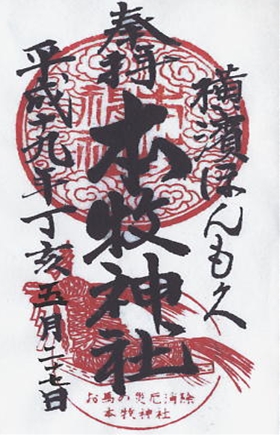 横濱ほんもく
奉拝
本牧神社
平成十九年丁亥五月二十七日
お馬の災厄消除
本牧神社